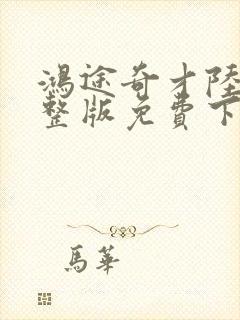 鴻途奇才陸
整版免費下
馬華